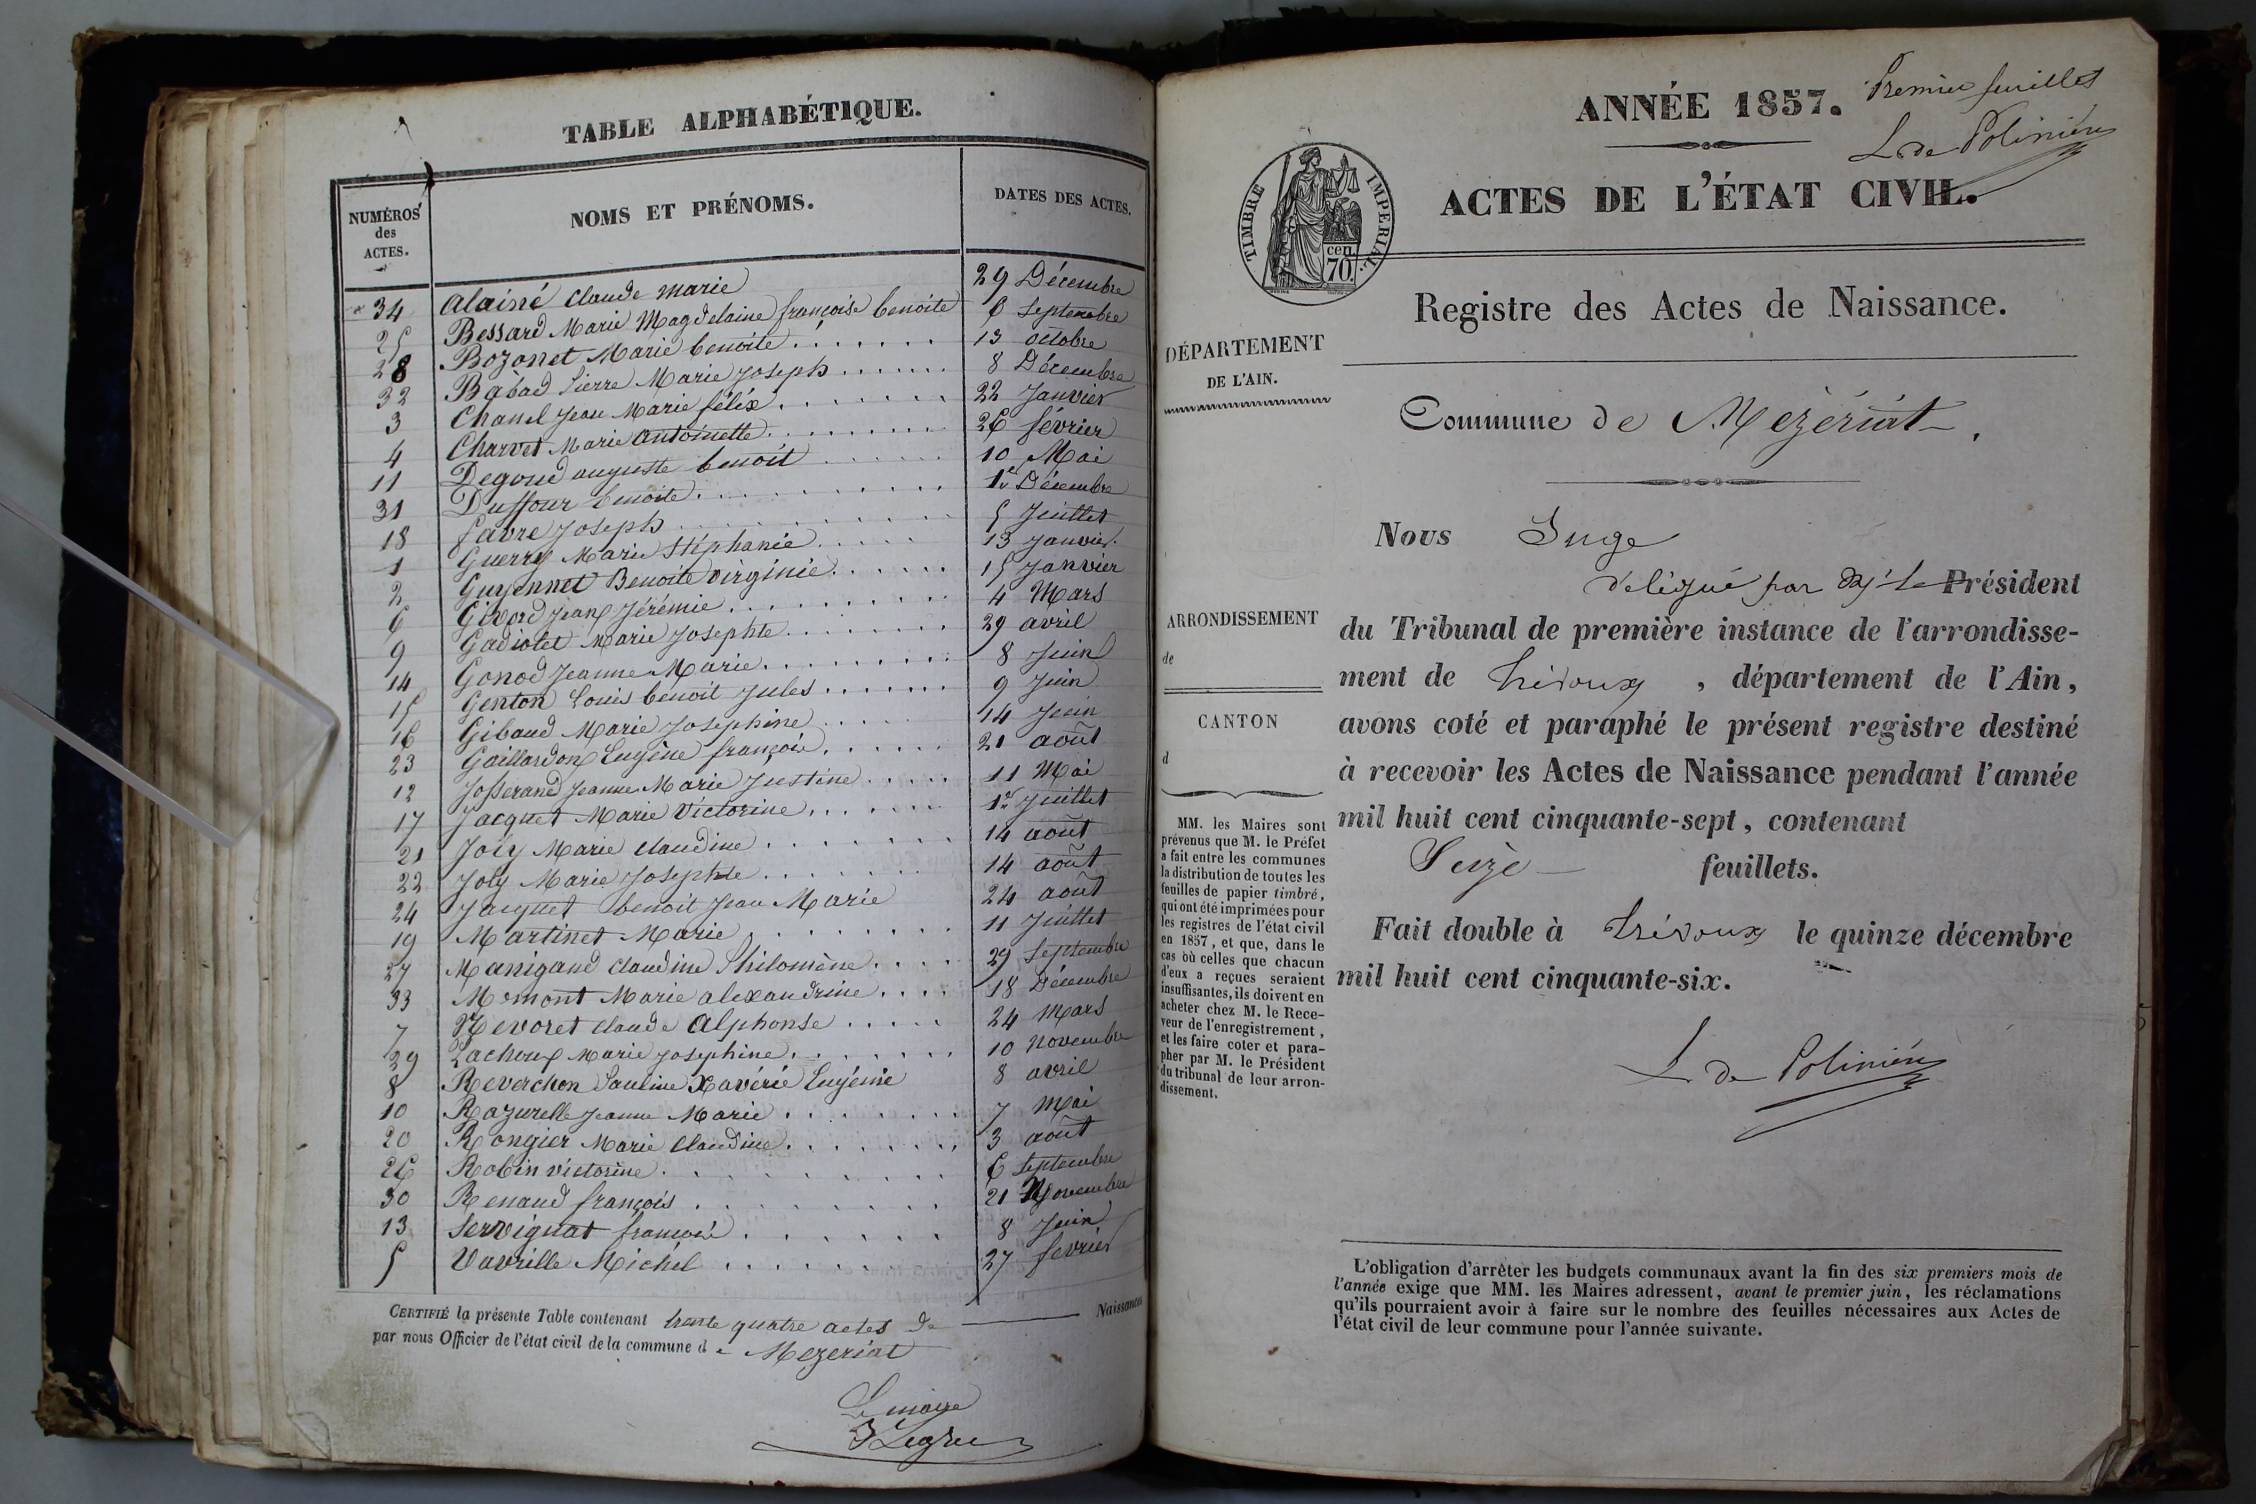 TABLE ALPHABÉTIQUE.
NUMÉROS des ACTES. NOMS ET PRÉNOMS. DATES DES ACTES.
34 Alainé Claude Marie 29 Décembre
25 Bessard Marie Magdelaine françoise benoite 6 Septembre
28 Bozonet Marie benoite 13 octobre
32 Babad Pierre Marie Joseph 8 Décembre
3 Chanel Jean Marie félix 22 Janvier
4 Charvet Marie antoinette 26 février
11 Degoud auguste benoit 10 Mai
31 Duffour benoite 1er Décembre
18 favre Joseph 5 Juillet
1 Guerry Marie Stéphanie 13 Janvier
2 Guyennet Benoite virginie 15 Janvier
6 Givord Jean Jérémie 4 Mars
9 Gadiolet Marie Josephte 29 avril
14 Gonod Jeanne Marie 8 Juin
15 Genton Louis benoit Jules 9 Juin
16 Gibaud Marie Josephine 14 Juin
23 Gaillardon Eugène françois 21 août
12 Josserand Jeanne Marie Justine 11 Mai
17 Jacquet Marie Victorine 1er Juillet
21 Joly Marie claudine 14 août
22 Joly Marie Josephte 14 août
24 Jacquet benoit Jean Marie 24 août
19 Martinet Marie 11 Juillet
27 Manigand claudine Philomène 29 Septembre
33 Momont Marie alexandrine 18 Décembre
7 Nevoret claude Alphonse 24 Mars
29 Pachoux Marie Josephine 10 Novembre
8 Reverchon Pauline Xavérié Eugénie 8 avril
10 Razurelle Jeanne Marie 7 Mai
20 Rongier Marie Claudine 3 août
26 Robin victorine 6 Septembre
30 Renaud françois 21 Novembre
13 Servignat françois 8 Juin
5 Vavrille Michel 27 fevrier
CERTIFIÉ la présente Table contenant trente quatre actes de Naissances
par nous Officier de l'état civil de la commune de Mezeriat
Le maire
ANNÉE 1857.
Premier feuillet
L. de Polinière
ACTES DE L'ÉTAT CIVIL.
TIMBRE IMPERIAL.
cen
70.
Registre des Actes de Naissance.
DÉPARTEMENT
DE L'AIN.
Commune de Mezériat
Nous Juge
délégué par Mr le Président
ARRONDISSEMENT
de
du Tribunal de première instance de l'arrondisse-
ment de Trévoux, département de l'Ain,
CANTON
d
avons coté et paraphé le présent registre destiné
à recevoir les Actes de Naissance pendant l'année
mil huit cent cinquante-sept, contenant
Seize feuillets.
Fait double à Trévoux le quinze décembre
mil huit cent cinquante-six.
L. de Polinière
MM. les Maires sont
prévenus que M. le Préfet
a fait entre les communes
la distribution de toutes les
feuilles de papier timbré,
qui ont été imprimées pour
les registres de l'état civil
en 1857, et que, dans le
cas où celles que chacun
d'eux a reçues seraient
insuffisantes, ils doivent en
acheter chez M. le Rece-
veur de l'enregistrement,
et les faire coter et para-
pher par M. le Président
du tribunal de leur arron-
dissement.
L'obligation d'arrêter les budgets communaux avant la fin des six premiers mois de
l'année exige que MM. les Maires adressent, avant le premier juin, les réclamations
qu'ils pourraient avoir à faire sur le nombre des feuilles nécessaires aux Actes de
l'état civil de leur commune pour l'année suivante.